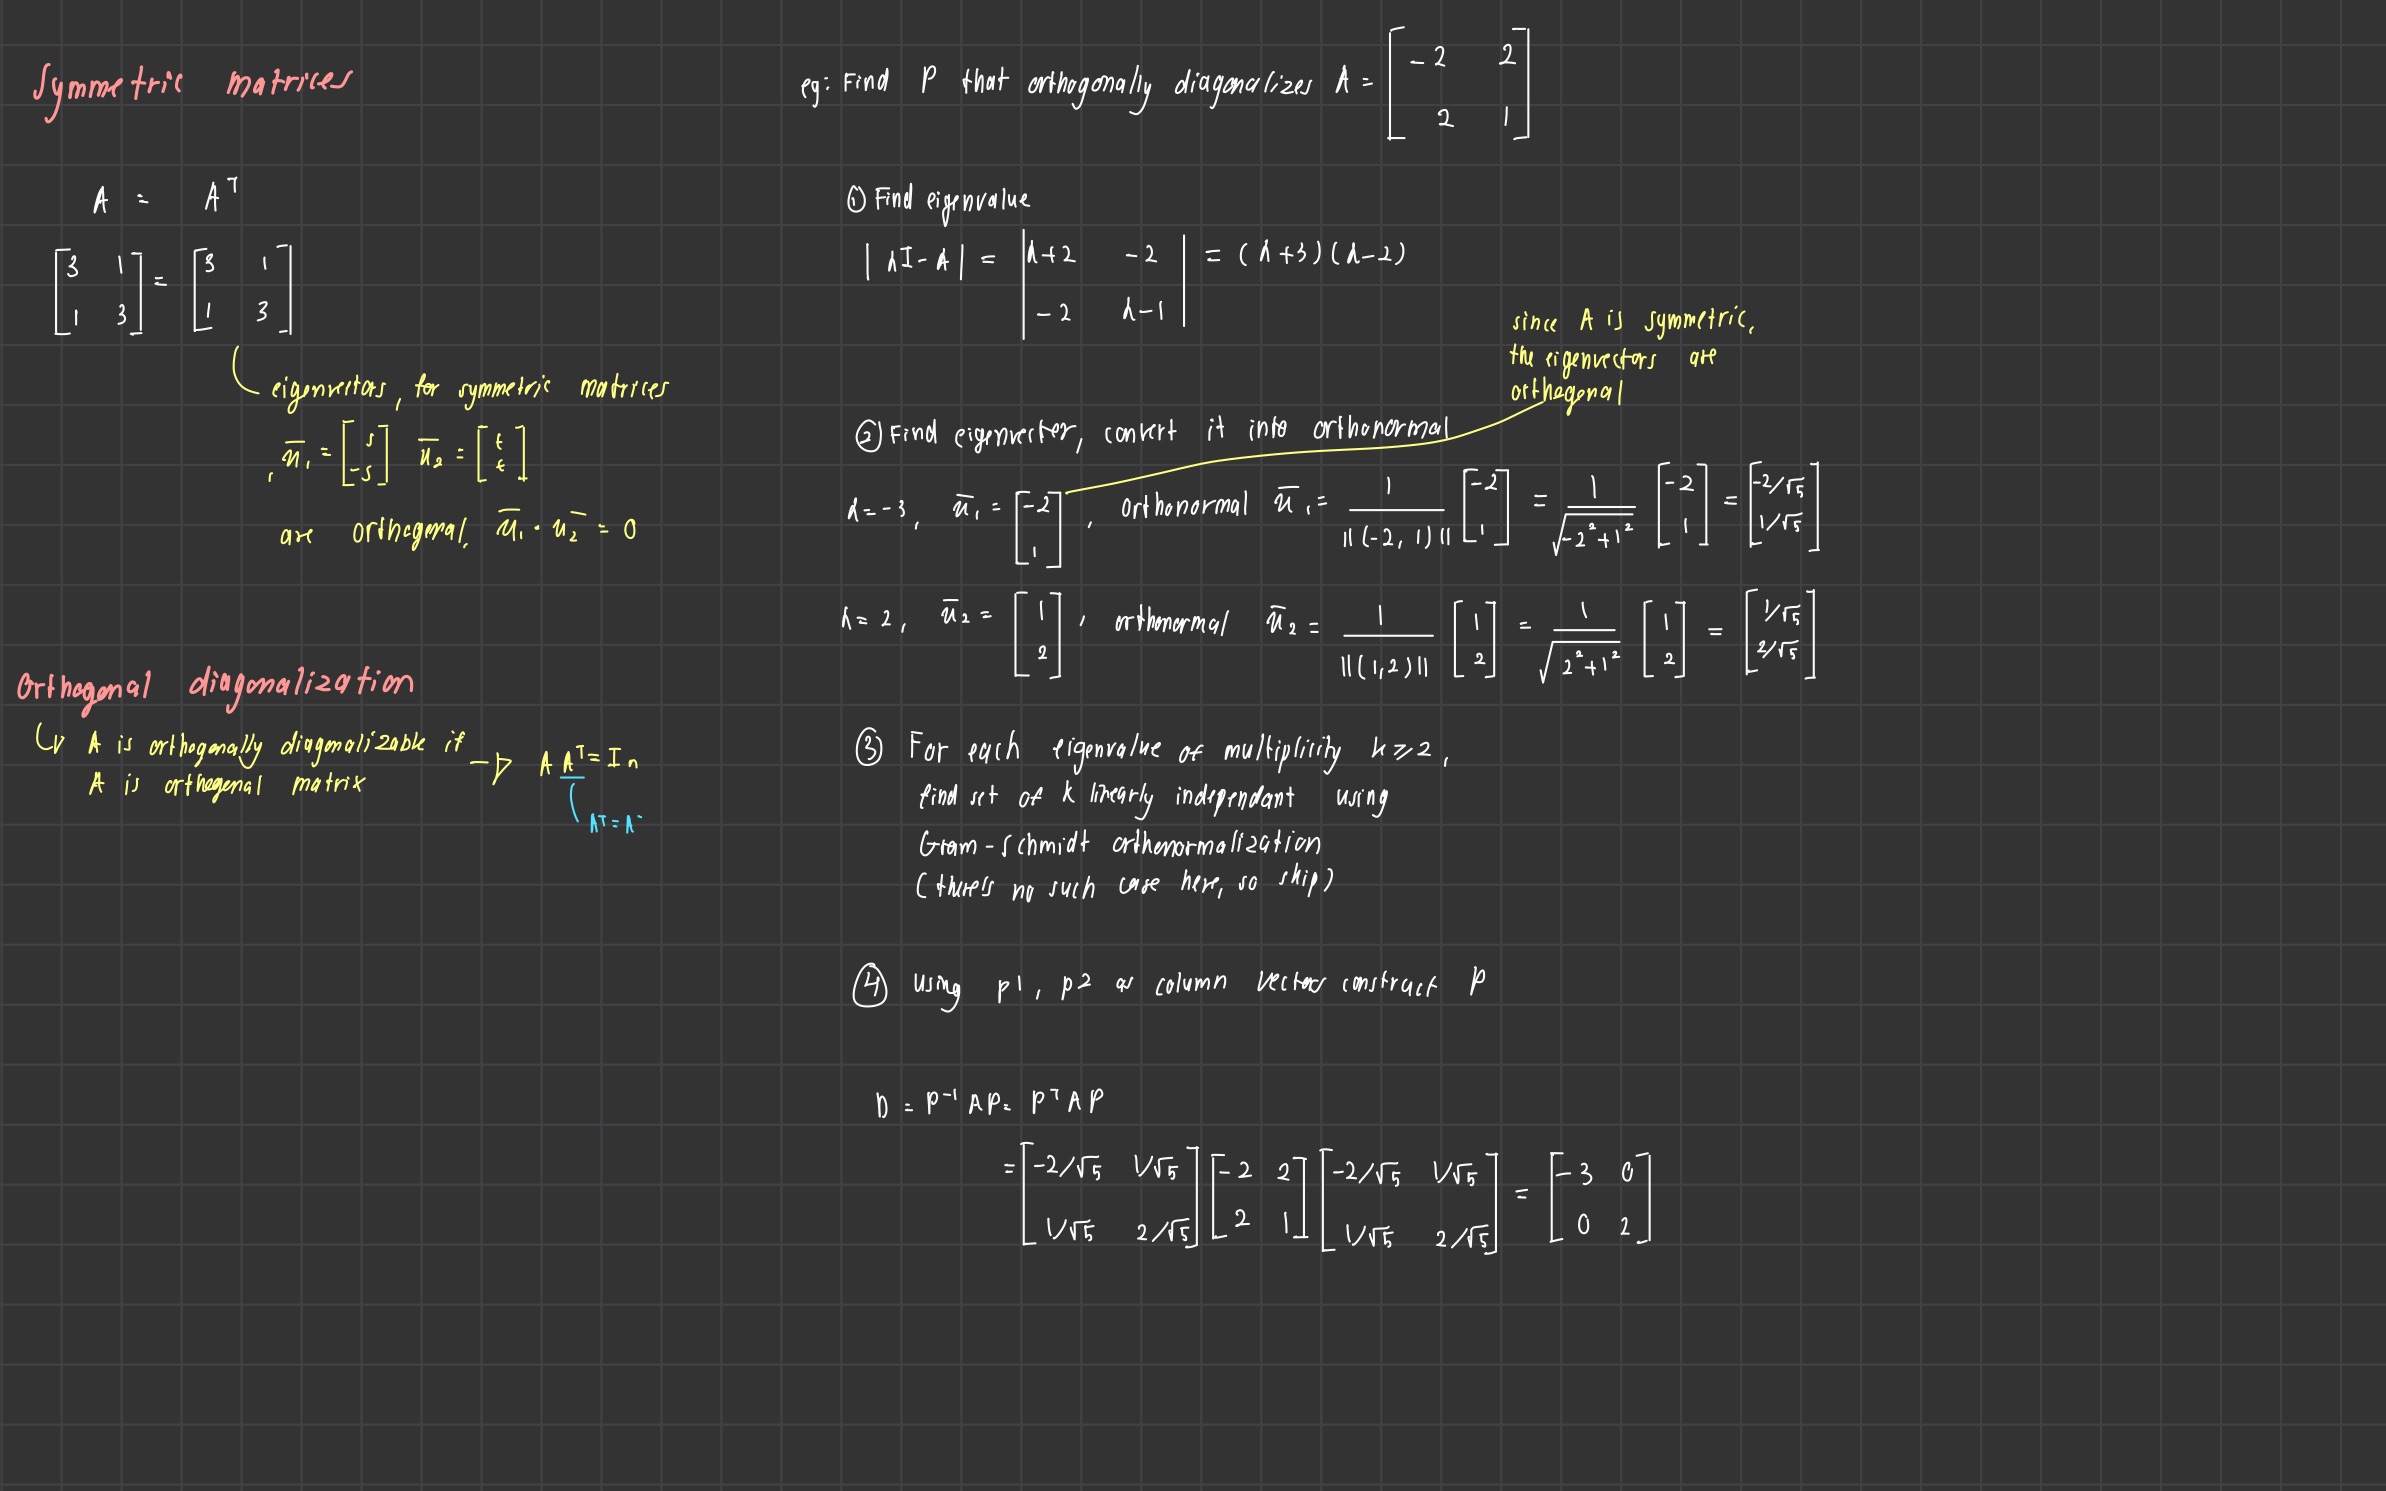 Symmetric matrices
A = Aᵀ
[3 1; 1 3] = [3 1; 1 3]
eigenvectors, for symmetric matrices
, u̅₁ = [s; -s] u̅₂ = [t; t]
are orthogonal, u̅₁ · u̅₂ = 0
Orthogonal diagonalization
↳ A is orthogonally diagonalizable if
A is orthogonal matrix
→ A Aᵀ = In
Aᵀ = A⁻
eg: Find P that orthogonally diagonalizes A = [-2 2; 2 1]
① Find eigenvalue
|λI - A| = |λ+2 -2; -2 λ-1| = (λ+3)(λ-2)
since A is symmetric,
the eigenvectors are
orthogonal
② Find eigenvector, convert it into orthonormal
λ = -3, u̅₁ = [-2; 1], orthonormal u̅₁ = 1/||(-2, 1)|| [-2; 1] = 1/√(-2²+1²) [-2; 1] = [-2/√5; 1/√5]
λ = 2, u̅₂ = [1; 2], orthonormal u̅₂ = 1/||(1,2)|| [1; 2] = 1/√(2²+1²) [1; 2] = [1/√5; 2/√5]
③ For each eigenvalue of multiplicity k ≥ 2,
find set of k linearly independant using
Gram-Schmidt orthonormalization
(there's no such case here, so skip)
④ using p1, p2 as column vectors construct P
D = P⁻¹ A P = Pᵀ A P
= [-2/√5 1/√5; 1/√5 2/√5] [-2 2; 2 1] [-2/√5 1/√5; 1/√5 2/√5] = [-3 0; 0 2]